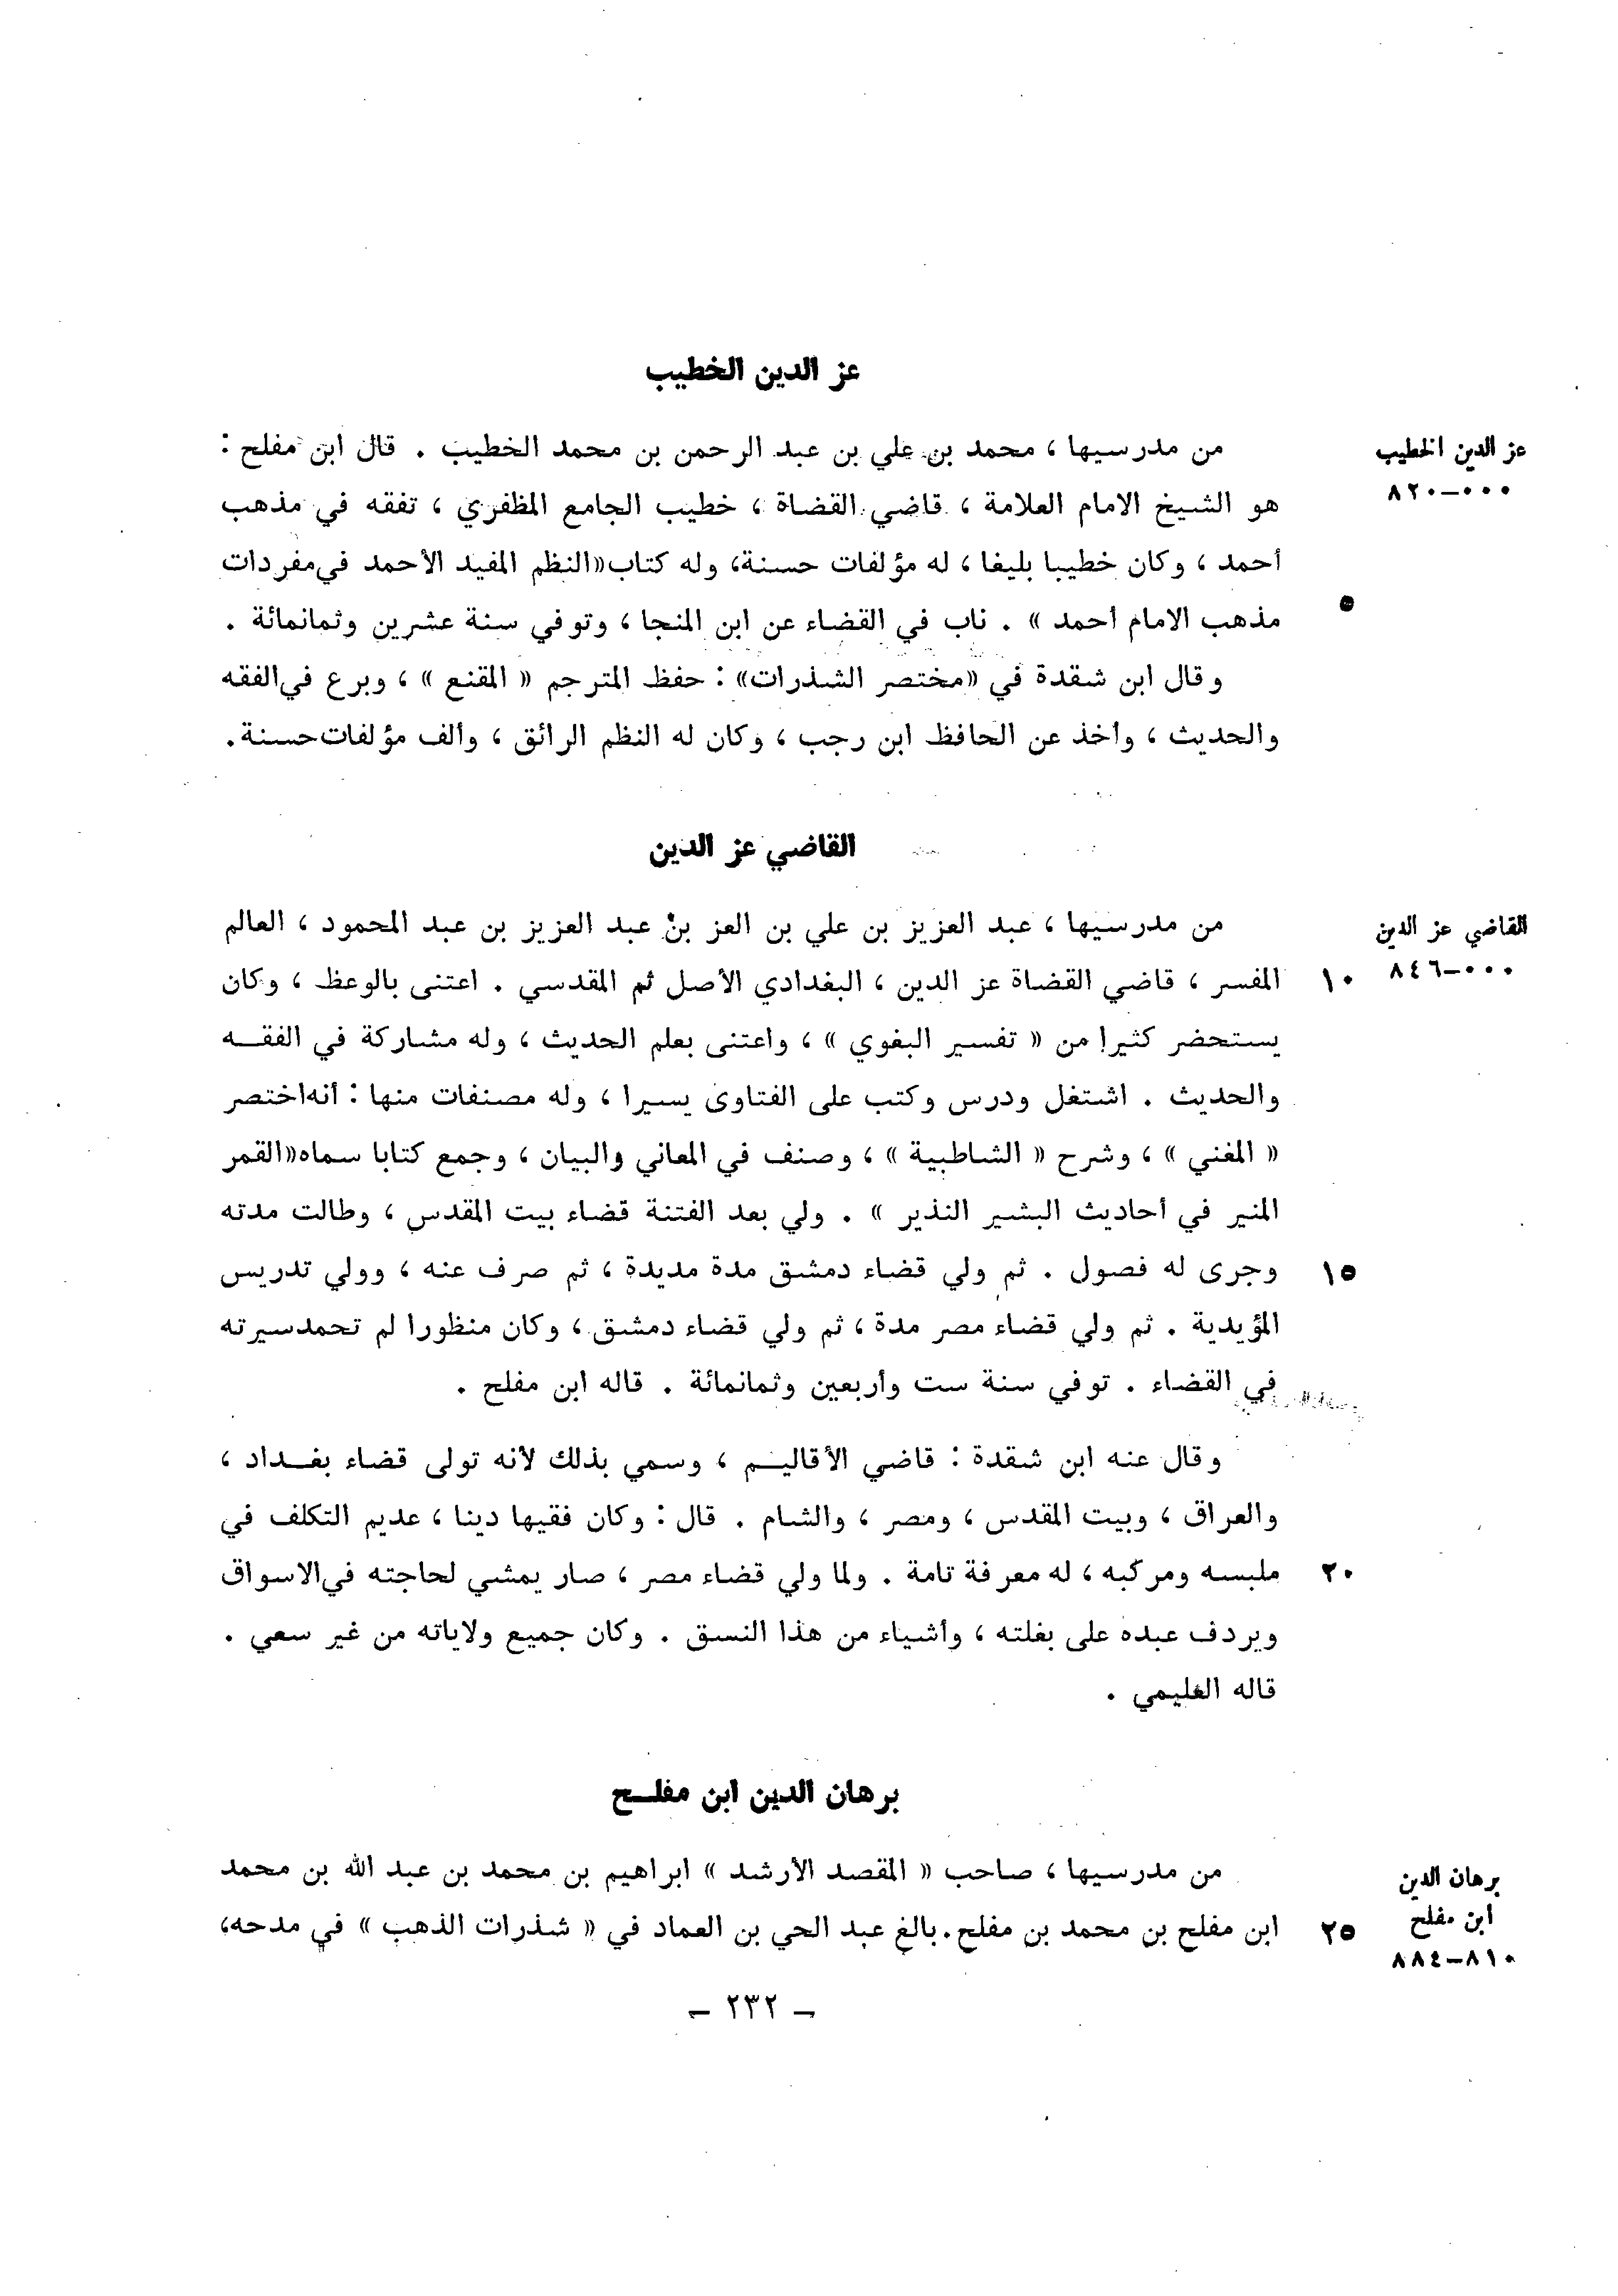 عز الدين الخطيب
عز الدين الخطيب
٠٠٠-٨٢٠
من مدرسيها ، محمد بن علي بن عبد الرحمن بن محمد الخطيب . قال ابن مفلح :
هو الشيخ الامام العلامة ، قاضي القضاة ، خطيب الجامع المظفري ، تفقه في مذهب
أحمد ، وكان خطيبا بليغا ، له مؤلفات حسنة، وله كتاب «النظم المفيد الأحمد في مفردات
٥ مذهب الامام أحمد » . ناب في القضاء عن ابن المنجا ، وتوفي سنة عشرين وثمانمائة .
وقال ابن شقدة في «مختصر الشذرات» : حفظ المترجم « المقنع » ، وبرع في الفقه
والحديث ، وأخذ عن الحافظ ابن رجب ، وكان له النظم الرائق ، وألف مؤلفات حسنة .
القاضي عز الدين
القاضي عز الدين
٠٠٠-٨٤٦
من مدرسيها ، عبد العزيز بن علي بن العز بن عبد العزيز بن عبد المحمود ، العالم
١٠ المفسر ، قاضي القضاة عز الدين ، البغدادي الأصل ثم المقدسي . اعتنى بالوعظ ، وكان
يستحضر كثيرا من « تفسير البغوي » ، واعتنى بعلم الحديث ، وله مشاركة في الفقـه
والحديث . اشتغل ودرس وكتب على الفتاوى يسيرا ، وله مصنفات منها : أنه اختصر
« المغني » ، وشرح « الشاطبية » ، وصنف في المعاني والبيان ، وجمع كتابا سماه «القمر
المنير في أحاديث البشير النذير » . ولي بعد الفتنة قضاء بيت المقدس ، وطالت مدته
١٥ وجرى له فصول . ثم ولي قضاء دمشق مدة مديدة ، ثم صرف عنه ، وولي تدريس
المؤيدية . ثم ولي قضاء مصر مدة ، ثم ولي قضاء دمشق ، وكان منظورا لم تحمد سيرته
في القضاء . توفي سنة ست وأربعين وثمانمائة . قاله ابن مفلح .
وقال عنه ابن شقدة : قاضي الأقاليـم ، وسمي بذلك لأنه تولى قضاء بغـداد ،
والعراق ، وبيت المقدس ، ومصر ، والشام . قال : وكان فقيها دينا ، عديم التكلف في
٢٠ ملبسه ومركبه ، له معرفة تامة . ولما ولي قضاء مصر ، صار يمشي لحاجته في الاسواق
ويردف عبده على بغلته ، وأشياء من هذا النسق . وكان جميع ولاياته من غير سعي .
قاله العليمي .
برهان الدين ابن مفلـح
برهان الدين
ابن مفلح
٨١٠-٨٨٤
من مدرسيها ، صاحب « المقصد الأرشد » ابراهيم بن محمد بن عبد الله بن محمد
٢٥ ابن مفلح بن محمد بن مفلح . بالغ عبد الحي بن العماد في « شذرات الذهب » في مدحه،
– ٢٣٢ –